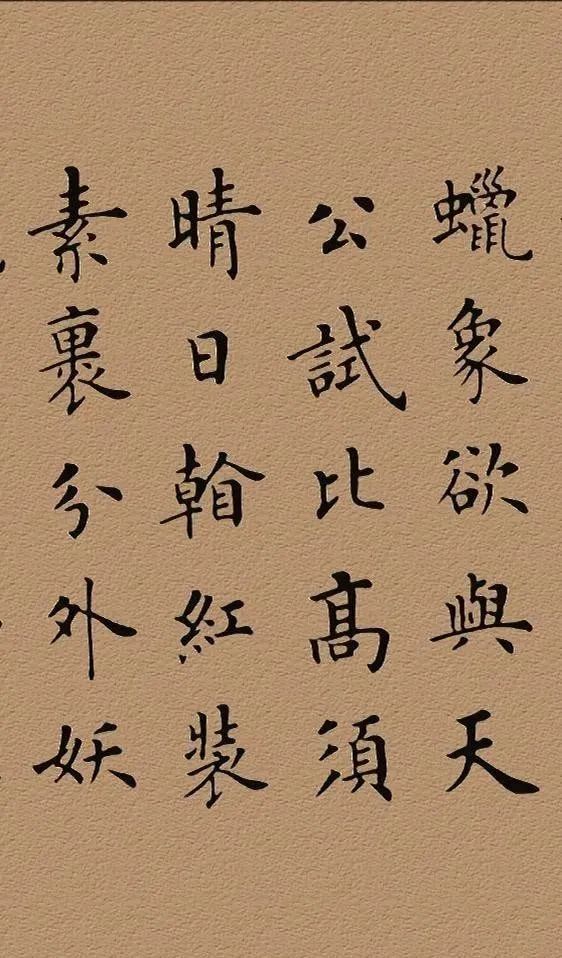 蠟象欲與天
公試比髙須
晴日看紅裝
素裹分外妖